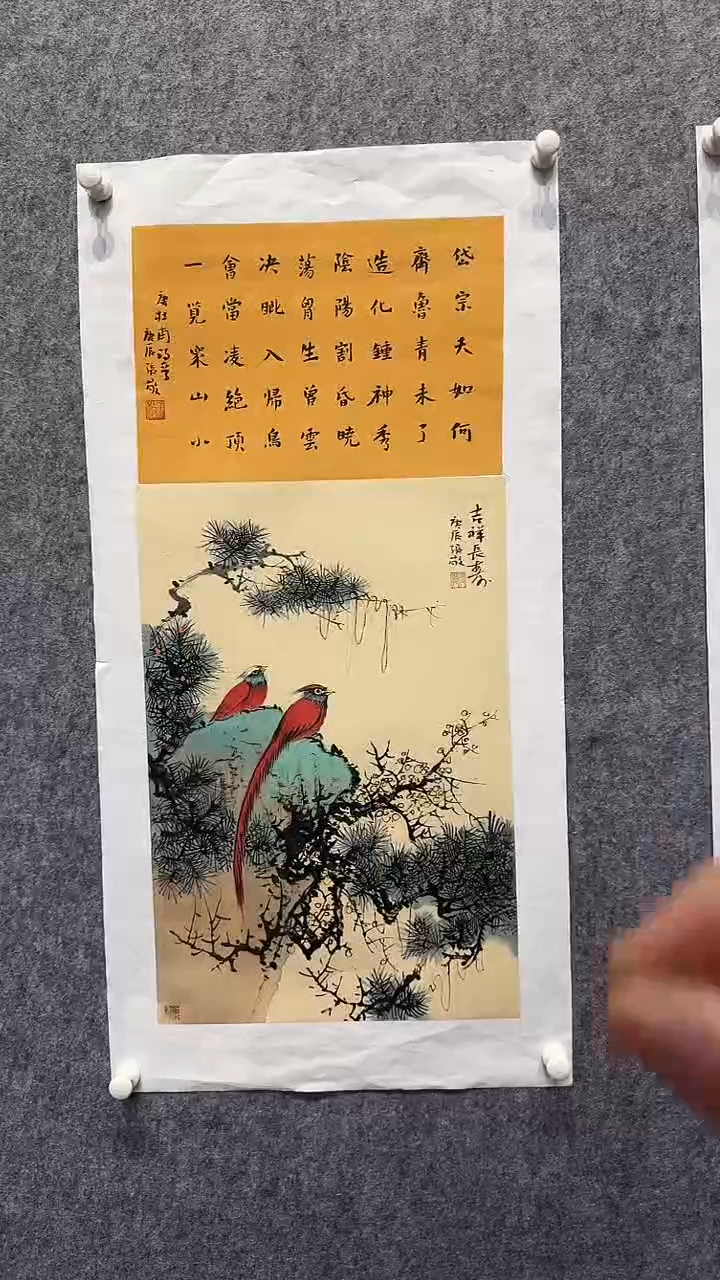 岱宗夫如何
齊魯青未了
造化鍾神秀
陰陽割昏曉
蕩胷生曾雲
决眦入歸鳥
會當凌絶頂
一覽衆山小
唐杜甫
庚辰張敬
吉祥長壽
庚辰張敬